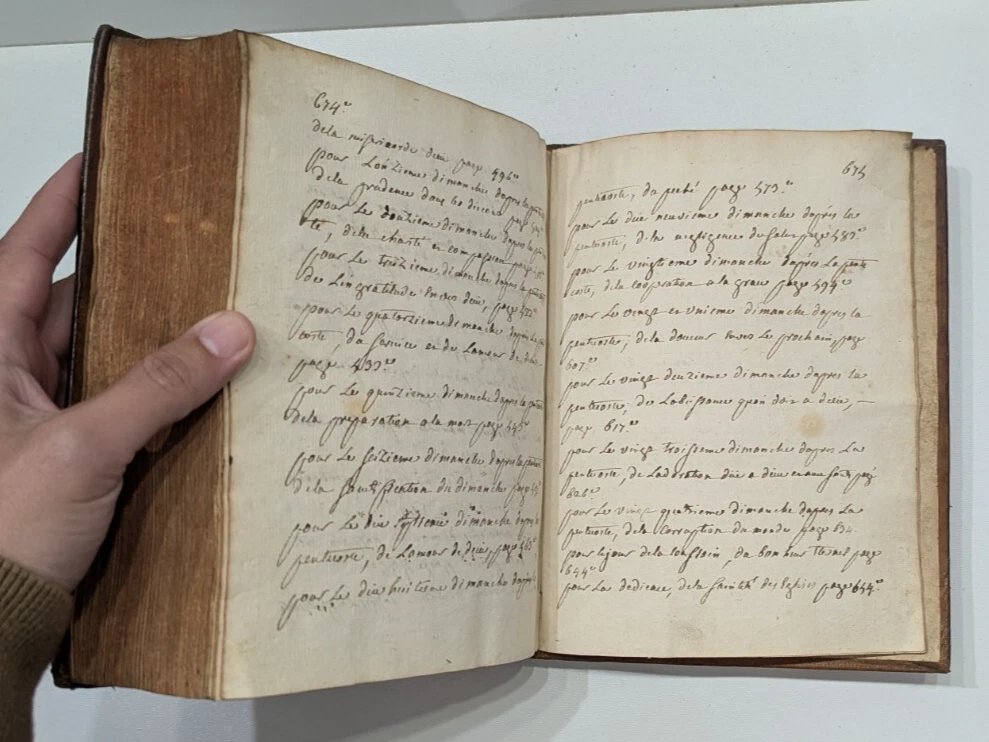 674.e
dela misericorde deu page 496.e
pour Lonzieme dimanche dapres la
dela prudence dans les page
pour Le douzieme dimanche dapres la pente
te, dela charité et compassion page
pour Le treizieme dimanche dapres la pente
de Lingratitude envers deiu, page 422
pour Le quatorzieme dimanche dapres la pen
coste du service et de Lamour de
page 433.e
pour Le quinzieme dimanche dapres la
dela preparation a la mort page 445.e
pour Le seizieme dimanche dapres la
dela du dimanche page
pour Le dix dimanche dapres
pentecoste, de Lamour de deiu, page 463
pour Les dix huitieme dimanche dapres
675
pentecoste, du peché page 473.e
pour Le dix neuvieme dimanche dapres la
pentecoste, dela negligence du salut page 483.e
pour Le vingtieme dimanche dapres La pente
coste, dela cooperation a la grace page 494.e
pour Le vingt et unieme dimanche dapres la
pentecoste, dela douceur envers le prochain, page
607.e
pour Le vingt deuzieme dimanche dapres la
pentecoste, de Lobissance quon doit a deiu, —
page 617.e
pour Le vingt troisieme dimanche dapres La
pentecoste, de Ladoration due a deiu et aux page
626.e
pour Le vingt quatrieme dimanche dapres La
pentecoste, dela Corruption du monde page 634
pour le jour dela toussain, du page
644.e
pour Las dedicace, dela sainteté des Eglises page 654.e